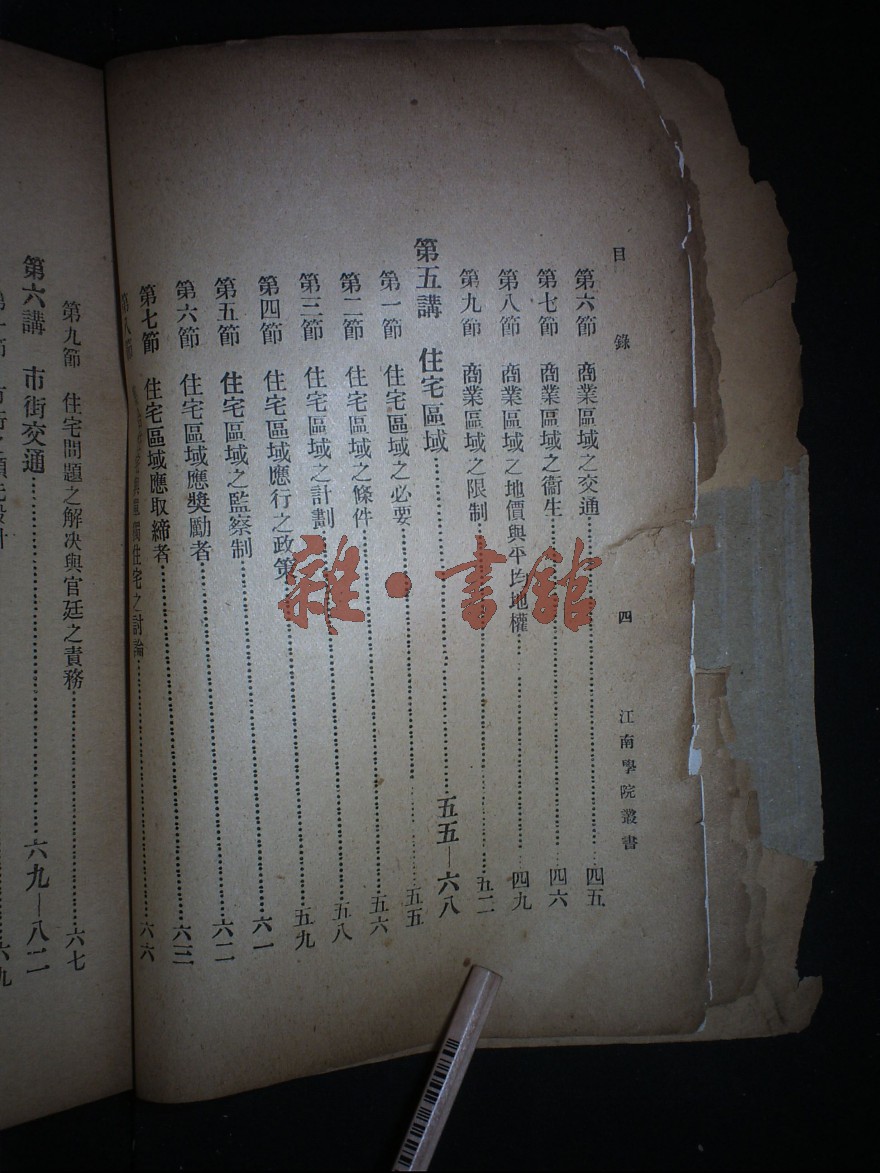 目錄 四 江南學院叢書
第六節 商業區域之交通……四五
第七節 商業區域之衞生……四六
第八節 商業區域之地價與平均地權……四九
第九節 商業區域之限制……五二
第五講 住宅區域……五五—六八
第一節 住宅區域之必要……五五
第二節 住宅區域之條件……五六
第三節 住宅區域之計劃……五八
第四節 住宅區域應行之政策……五九
第五節 住宅區域之監察制……六一
第六節 住宅區域應獎勵者……六二
第七節 住宅區域應取締者……六三
第八節 住宅之討論……六六
第九節 住宅問題之解决與官廷之責務……六七
第六講 市街交通……六九—八二
第一節 六九
雜·書館